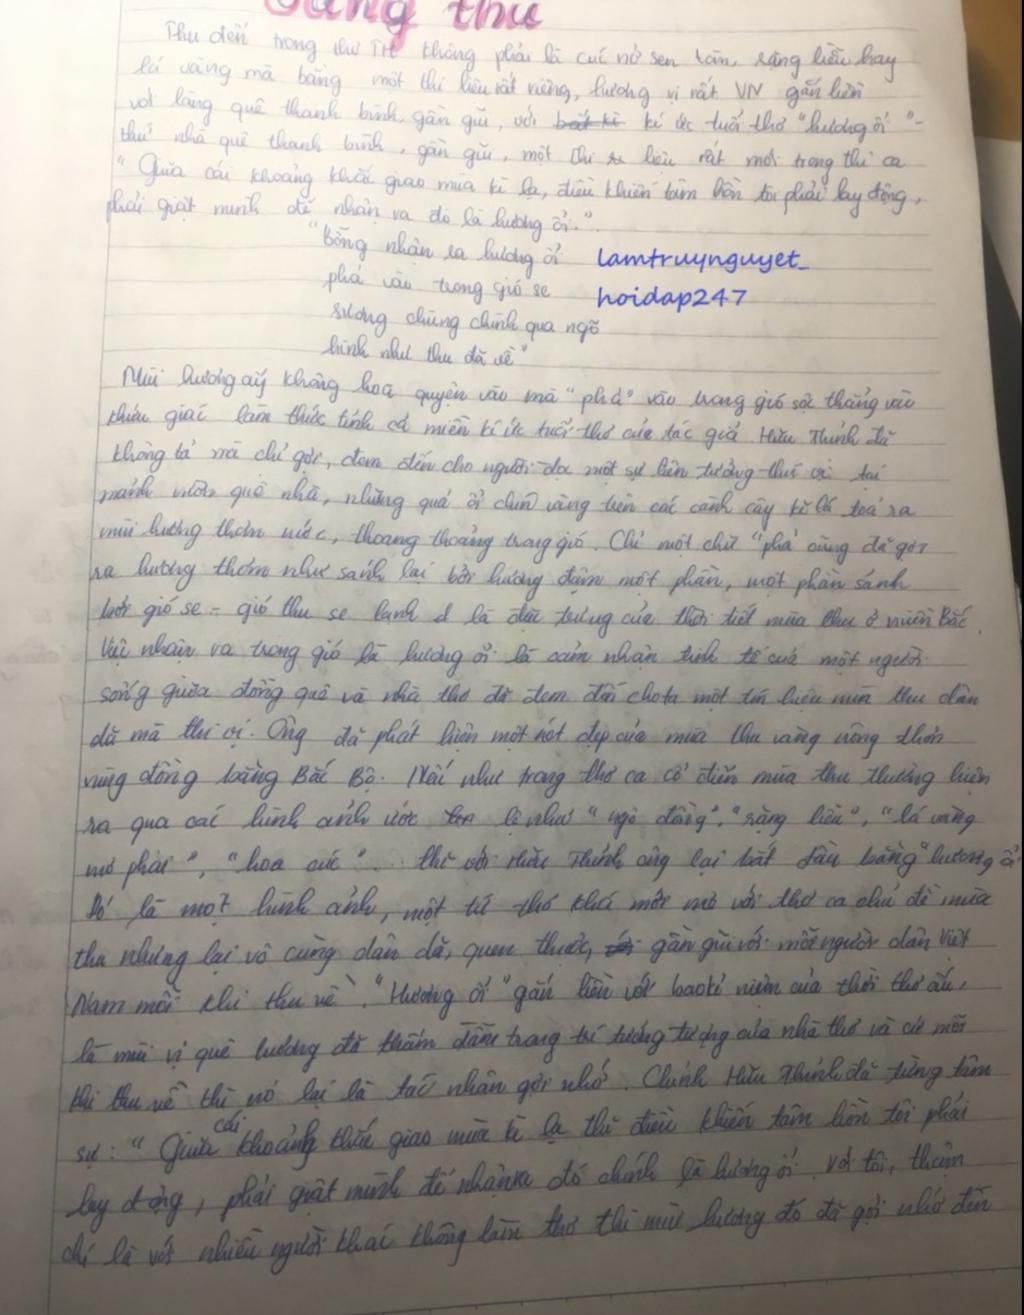 Sang thu
Thu đến trong thơ TH không phải là cúc nở sen tàn, rặng liễu hay
lá vàng mà bằng một thi liệu rất riêng, hương vị rất VN gắn liền
với làng quê thanh bình, gần gũi, với kí ức tuổi thơ "hương ổi" -
thứ nhà quê thanh bình, gần gũi, một thi liệu rất mới trong thi ca
"Giữa cái khoảng khắc giao mùa kì lạ, điều khiến tâm hồn tôi phải lay động,
phải giật mình để nhận ra đó là hương ổi."
"Bỗng nhận ra hương ổi
lamtruynguyet_
phả vào trong gió se
hoidap247
sương chùng chình qua ngõ
hình như thu đã về"
Mùi hương ấy không hoà quyện vào mà "phả" vào trong gió sộc thẳng vào
khứu giác làm thức tỉnh cả miền kí ức tuổi thơ của tác giả. Hữu Thỉnh đã
không tả mà chỉ gợi, đem đến cho người đọc một sự liên tưởng thú vị tại
mảnh vườn quê nhà, những quả ổi chín vàng trên các cành cây kẽ lá toả ra
mùi hương thơm nức, thoang thoảng trong gió. Chỉ một chữ "phả" cũng đã gợi
ra hương thơm như sánh lại bởi hương đậm một phần, một phần sánh
bởi gió se - gió thu se lạnh là đặc trưng của thời tiết mùa thu ở miền Bắc.
Việc nhận ra trong gió là hương ổi là cảm nhận tinh tế của một người
sống giữa đồng quê và nhà thơ đã đem đến cho ta một tín hiệu mùa thu dân
dã mà thi vị. Ông đã phát hiện một nét đẹp của mùa thu vàng nông thôn
vùng đồng bằng Bắc Bộ. Nếu như trong thơ ca cổ điển mùa thu thường hiện
ra qua các hình ảnh ước lệ như "ngô đồng", "rặng liễu", "lá vàng
mơ phai", "hoa cúc"... thì với Hữu Thỉnh ông lại bắt đầu bằng "hương ổi
Đó là một hình ảnh, một tứ thơ khá mới mẻ với thơ ca chủ đề mùa
thu nhưng lại vô cùng dân dã, quen thuộc, gần gũi với mỗi người dân Việt
Nam mỗi khi thu về. "Hương ổi" gắn liền với bao kỉ niệm của thời thơ ấu,
là mùi vị quê hương đã thấm đẫm trong trí tưởng tượng của nhà thơ và cứ mỗi
khi thu về thì nó lại là tác nhân gợi nhớ. Chính Hữu Thỉnh đã từng tâm
sự: "Giữa cái khoảng khắc giao mùa kì lạ thì điều khiến tâm hồn tôi phải
lay động, phải giật mình để nhận ra đó chính là hương ổi. Với tôi, thậm
chí là với nhiều người khác không làm thơ thì mùi hương đó đã gợi nhớ đến